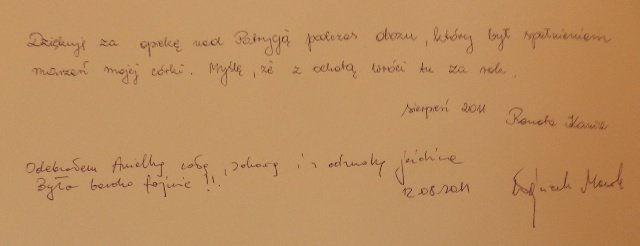 Dziękuję za opiekę nad Patrycją podczas obozu, który był spełnieniem
marzeń mojej córki. Myślę, że z ochotą wróci tu za rok.
sierpień 2011
Renata
Odebrałem Amelkę całą, zdrową i z odznaką
Było bardzo fajnie !!.
12.08.2011